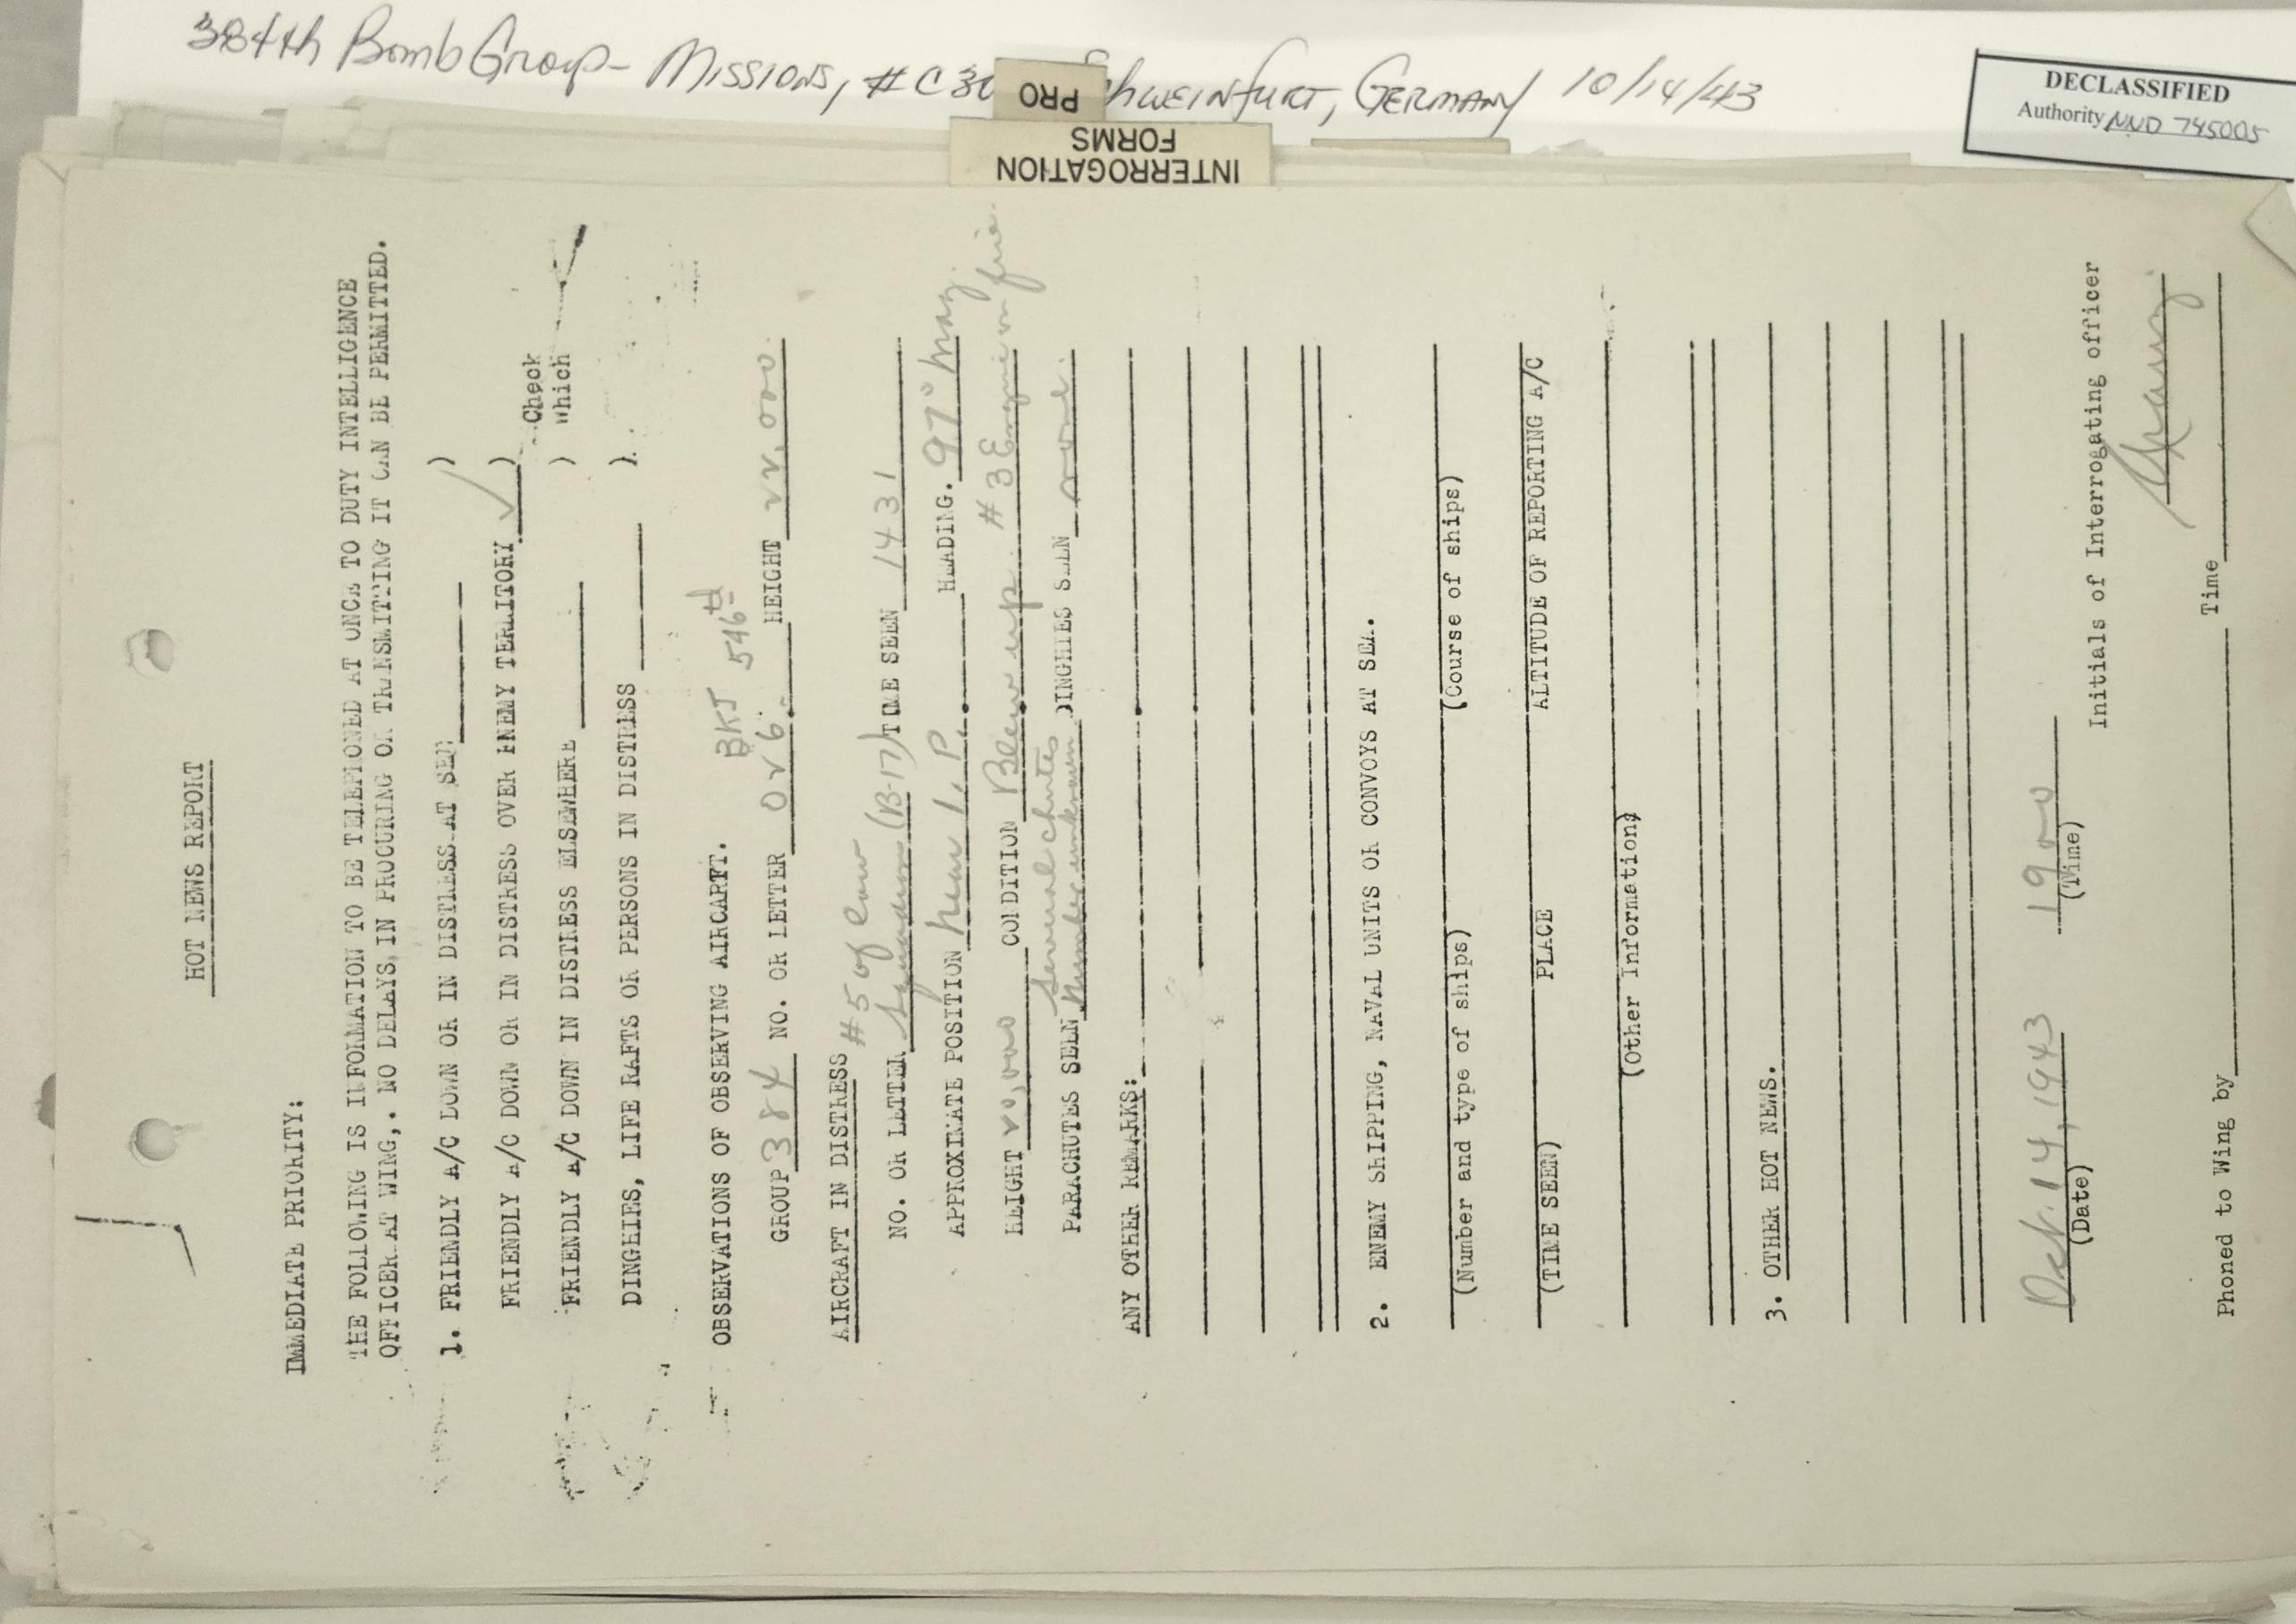 384th Bomb Group - Missions, #C30 Schweinfurt, Germany 10/14/43
DECLASSIFIED
Authority NND 745005
PRO
INTERROGATION
FORMS
HOT NEWS REPORT
IMMEDIATE PRIORITY:
THE FOLLOWING IS INFORMATION TO BE TELEPHONED AT ONCE TO DUTY INTELLIGENCE
OFFICER AT WING,. NO DELAYS IN PROCURING OR TRANSMITTING IT CAN BE PERMITTED.
1. FRIENDLY A/C DOWN OR IN DISTRESS AT SEA )
FRIENDLY A/C DOWN OR IN DISTRESS OVER ENEMY TERRITORY ✓ ) Check
FRIENDLY A/C DOWN IN DISTRESS ELSEWHERE ) which
DINGHIES, LIFE RAFTS OR PERSONS IN DISTRESS ).
OBSERVATIONS OF OBSERVING AIRCARFT. BKJ 546th
GROUP 384 NO. OR LETTER 026. HEIGHT 22,000.
AIRCRAFT IN DISTRESS #5 of low
NO. OR LETTER Squadron (B-17) TIME SEEN 1431
APPROXIMATE POSITION Near I.P. HEADING. 97° Mag.
HEIGHT 20,000 CONDITION Blew up. #3 Engine on fire.
Several chutes
PARACHUTES SEEN Number unknown DINGHIES SEEN none.
ANY OTHER REMARKS:
2. ENEMY SHIPPING, NAVAL UNITS OR CONVOYS AT SEA.
(Number and type of ships) (Course of ships)
(TIME SEEN) PLACE ALTITUDE OF REPORTING A/C
(Other Information)
3. OTHER HOT NEWS.
Oct. 14, 1943 1900
(Date) (Time)
Initials of Interrogating officer
Phoned to Wing by Time